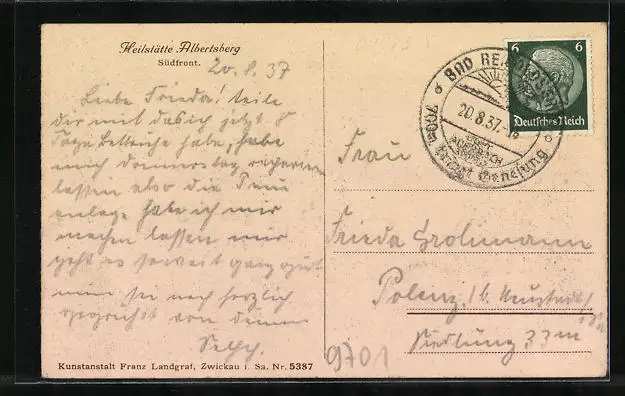 Heilstätte Albertsberg
Südfront.
20.8.37
Liebe Frieda! teile
dir mit das ich jetzt 8
Tage Bettruhe habe, habe
mich Donnerstag
lassen also die
anlage habe ich mir
machen lassen mir
geht es soweit ganz gut
nun sei noch herzlich
gegrüßt von deinem
Kunstanstalt Franz Landgraf, Zwickau i. Sa. Nr. 5387
BAD
20.8.37
AUERBACH
700m
Genesung
6 6
Deutsches Reich
Frau
Frieda Grohmann
Polenz / b. Neustadt /
Siedlung 33m
9701